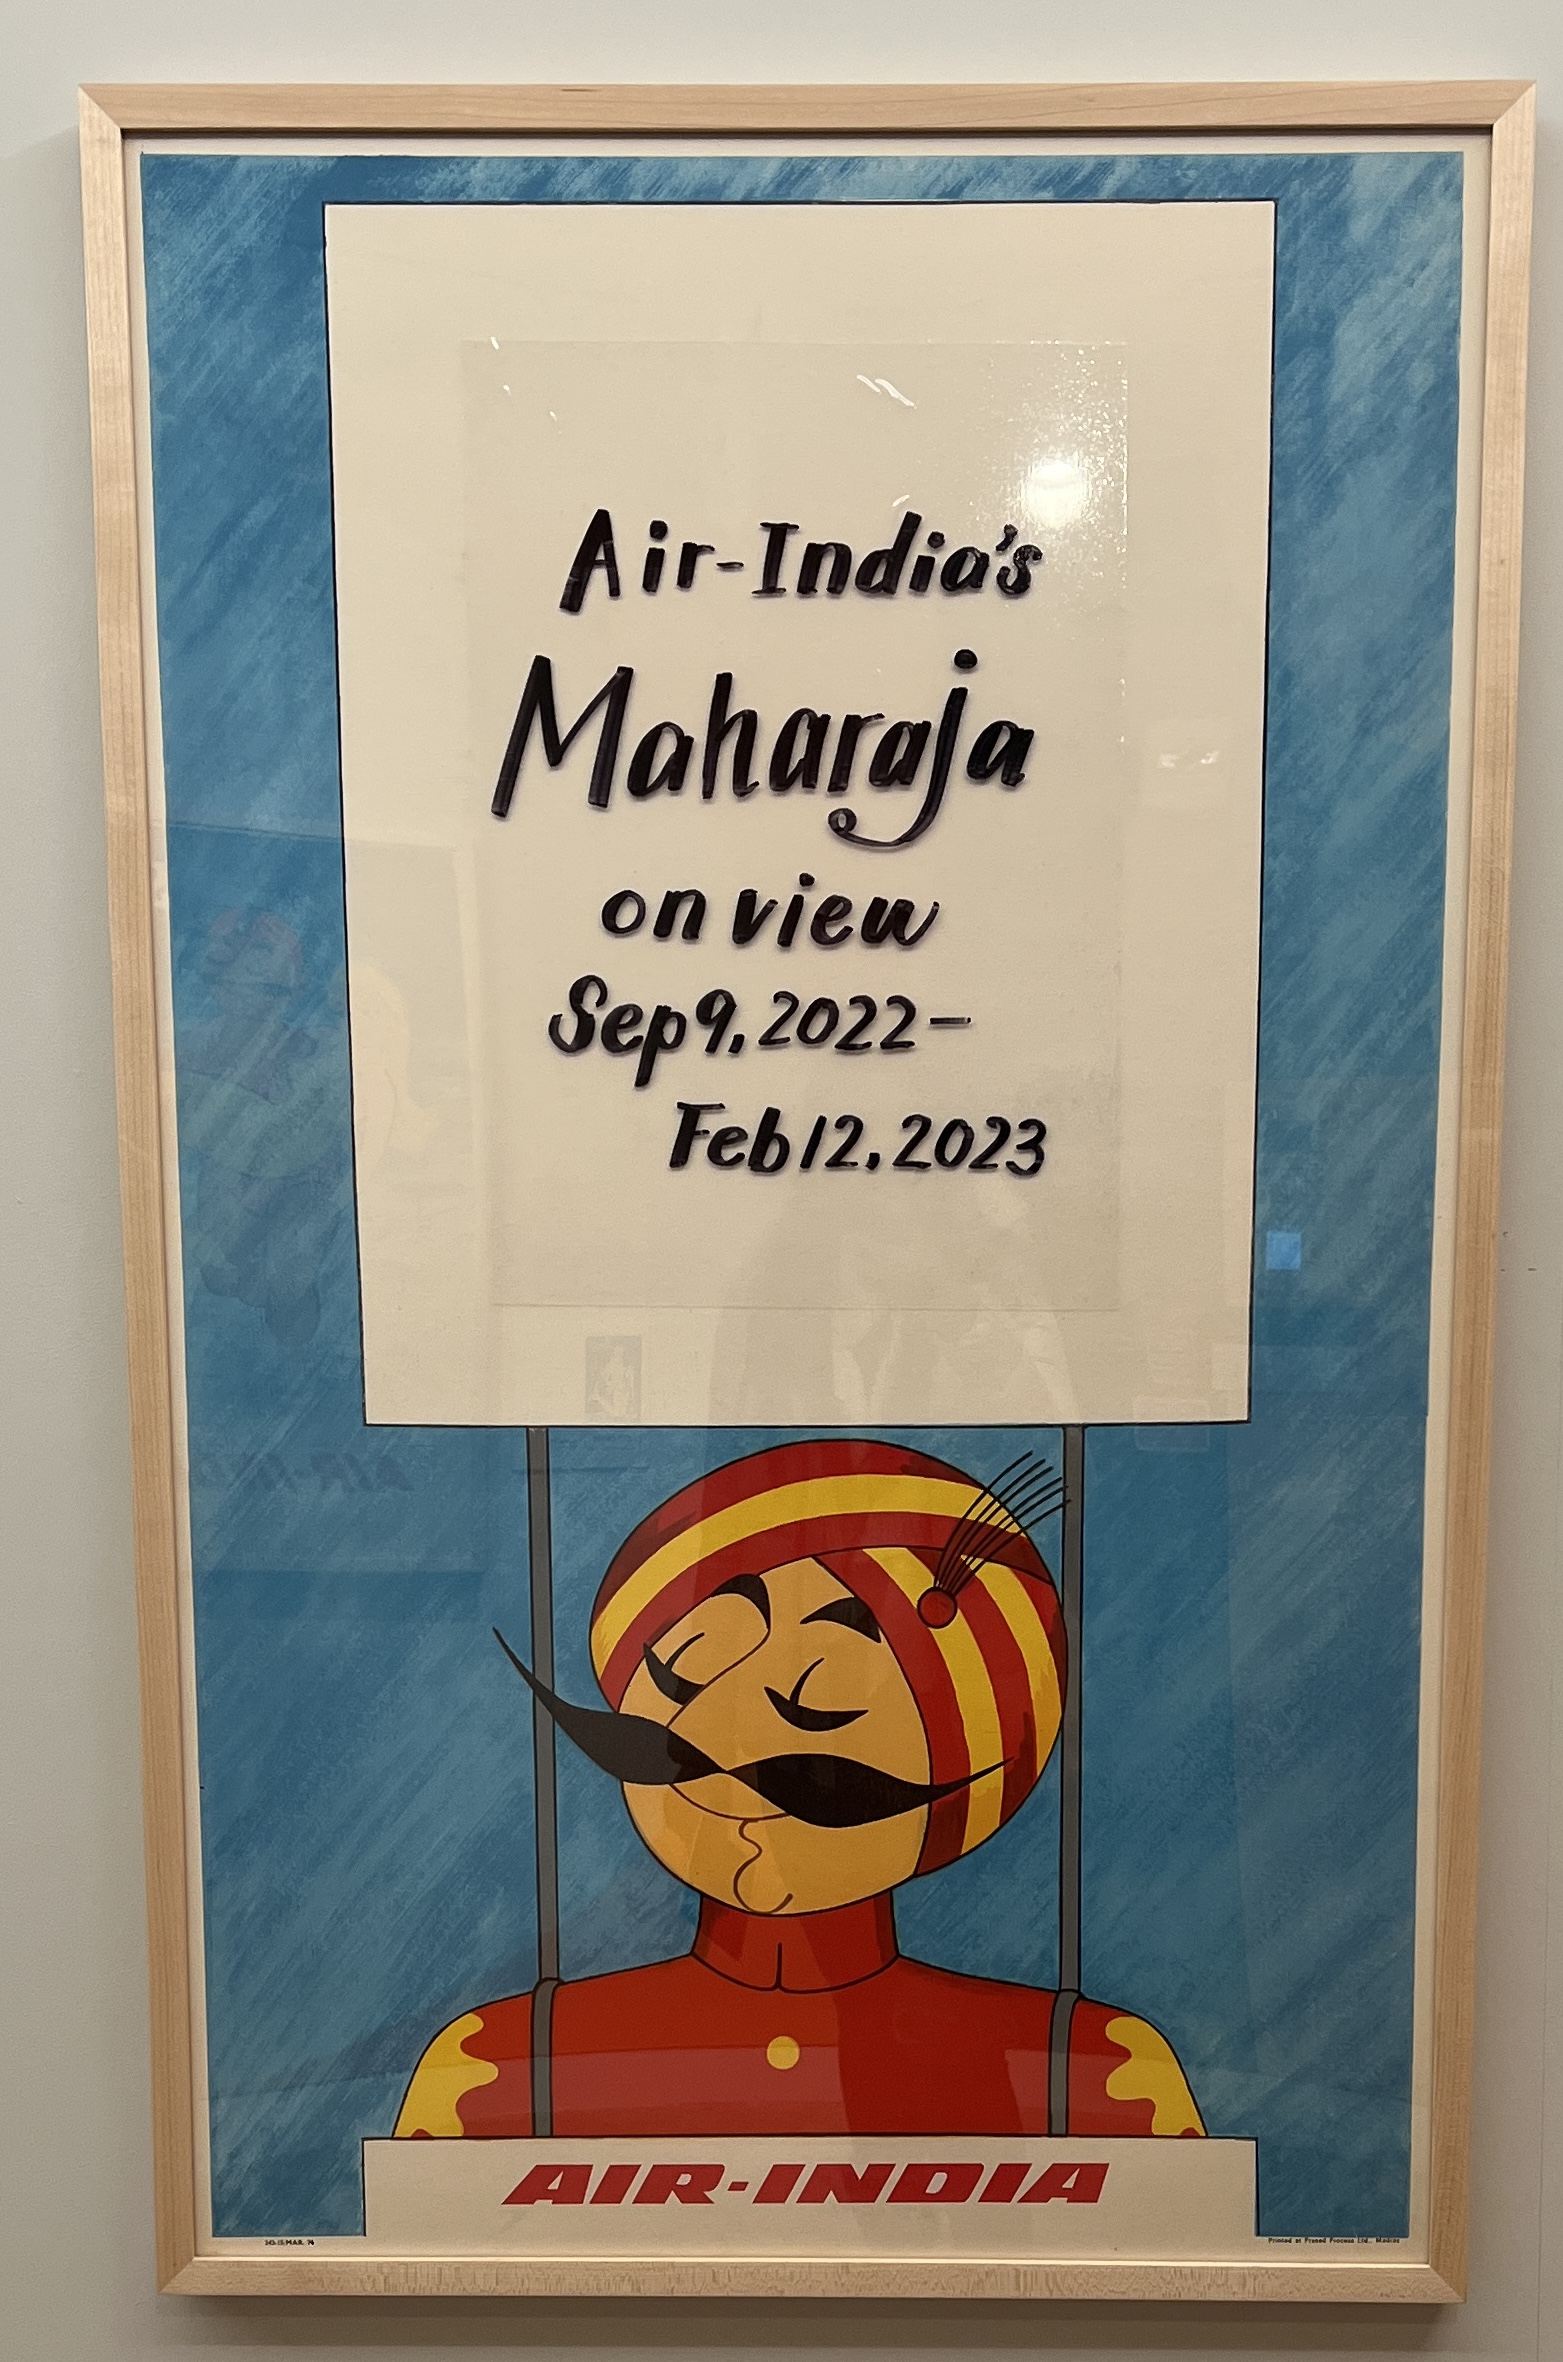 Air-India's
Maharaja
on view
Sep 9, 2022–
Feb 12, 2023
AIR-INDIA
MAR. 74
Printed at Prasad Process Ltd., Madras